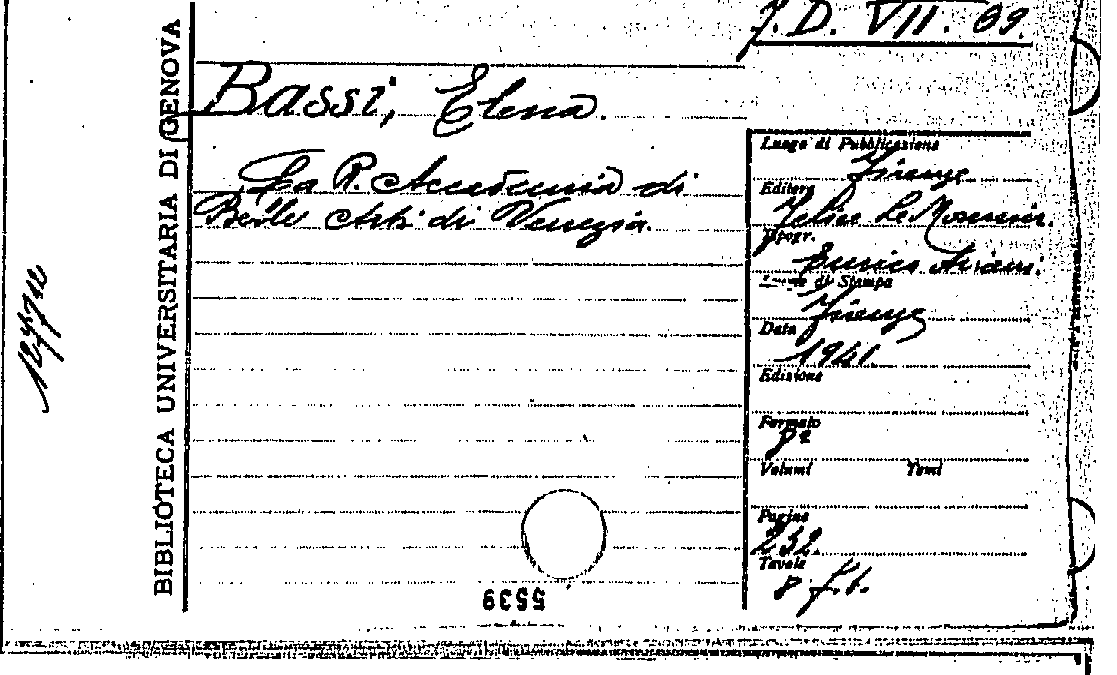 7. D. VII. 69.
BIBLIOTECA UNIVERSITARIA DI GENOVA
Bassi, Elena.
La R. Accademia di
Belle Arti di Venezia.
Luogo di Pubblicazione
Firenze
Editore
Felice Le Monnier.
Tipogr.
Enrico Ariani.
di Stampa
Firenze
Data
1941
Edizione
Formato
8º
Volumi Tomi
Pagine
232.
Tavole
8 f.t.
5539